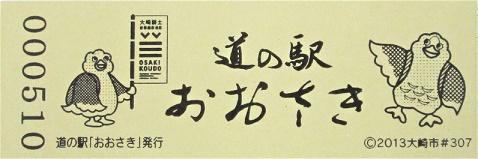 000510
OSAKI
KOUDO
道の駅
おおさき
道の駅「おおさき」発行
©2013大崎市#307